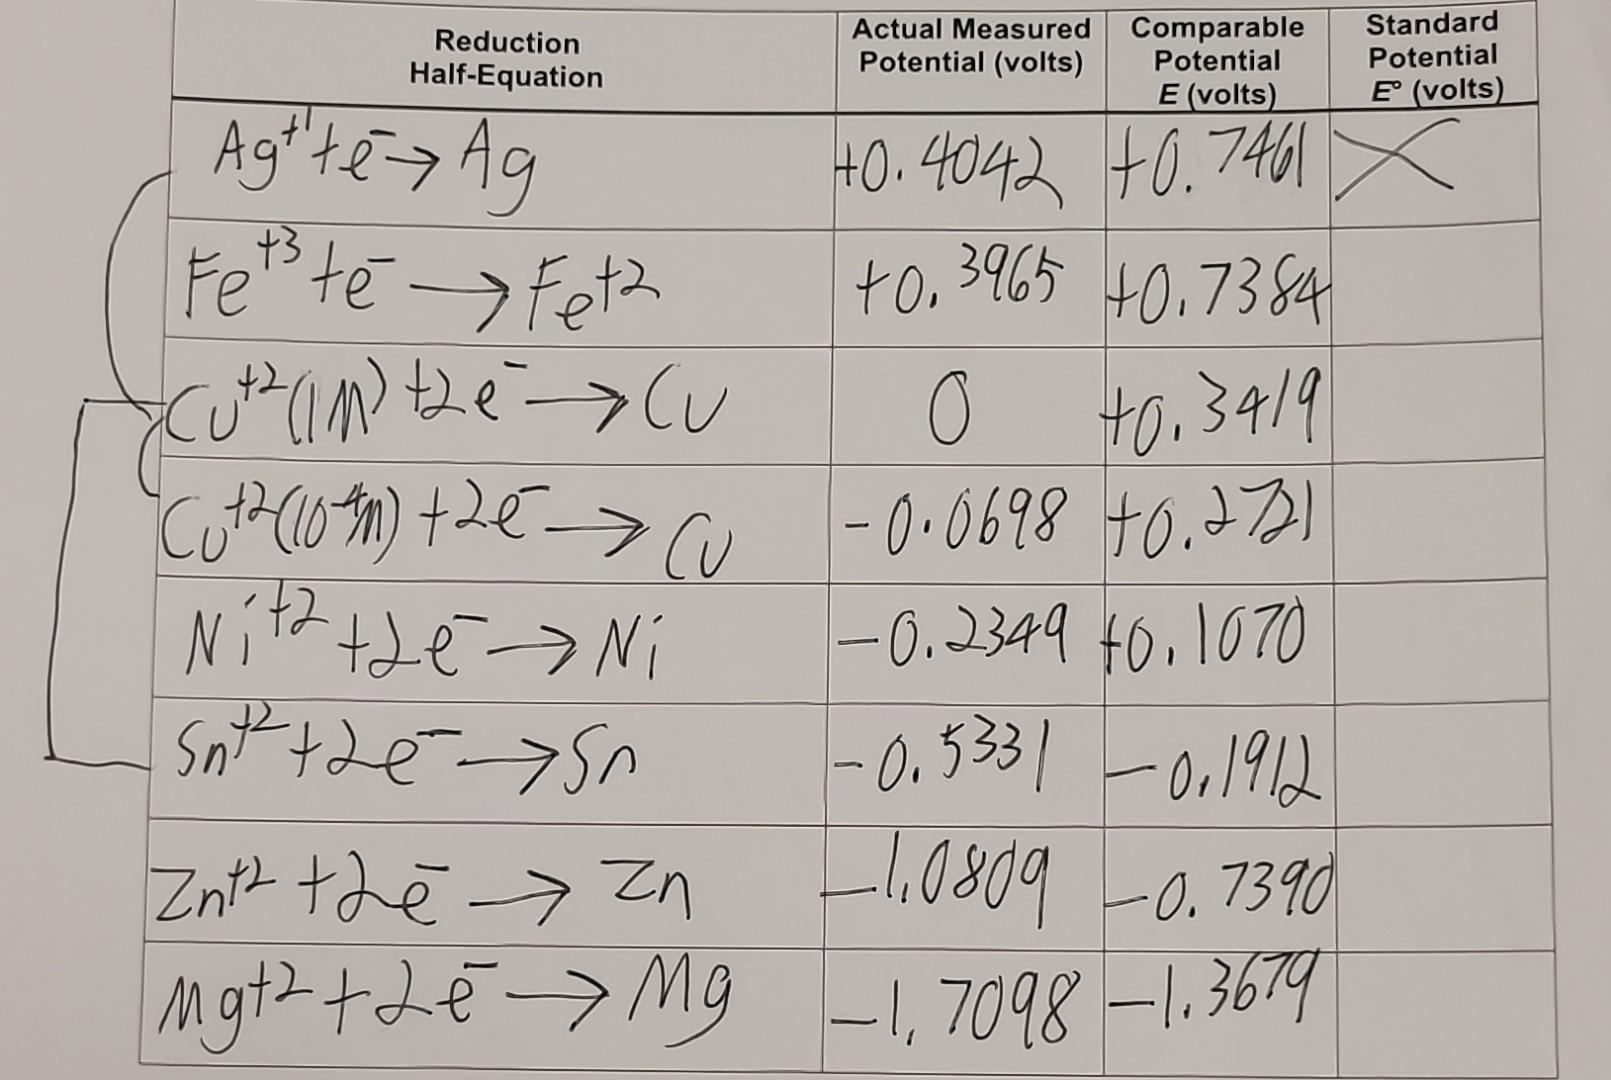 Reduction Half-Equation | Actual Measured Potential (volts) | Comparable Potential E (volts) | Standard Potential E° (volts)
Ag⁺¹ + e⁻ → Ag | +0.4042 | +0.7461 | X
Fe⁺³ + e⁻ → Fe+2 | +0.3965 | +0.7384
Cu⁺²(1M) + 2e⁻ → Cu | 0 | +0.3419
Cu⁺²(10⁻⁴M) + 2e⁻ → Cu | -0.0698 | +0.2721
Ni⁺² + 2e⁻ → Ni | -0.2349 | +0.1070
Sn⁺² + 2e⁻ → Sn | -0.5331 | -0.1912
Zn⁺² + 2e⁻ → Zn | -1.0809 | -0.7390
Mg⁺² + 2e⁻ → Mg | -1.7098 | -1.3679